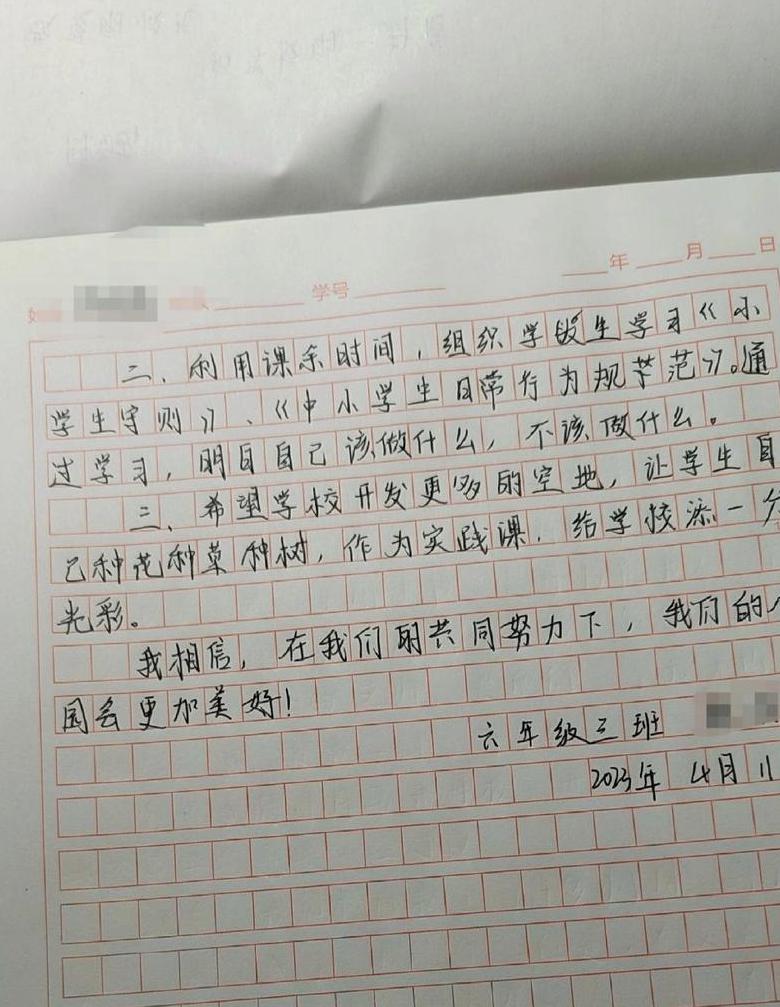 学号 年 月 日
二、利用课余时间，组织学生学习《小
学生守则》、《中小学生日常行为规范》。通
过学习，明自自己该做什么，不该做什么。
三、希望学校开发更多的空地，让学生自
己种花种草种树，作为实践课，给学校添一分
光彩。
我相信，在我们的共同努力下，我们的
园会更加美好！
六年级三班
2023年 4月 11